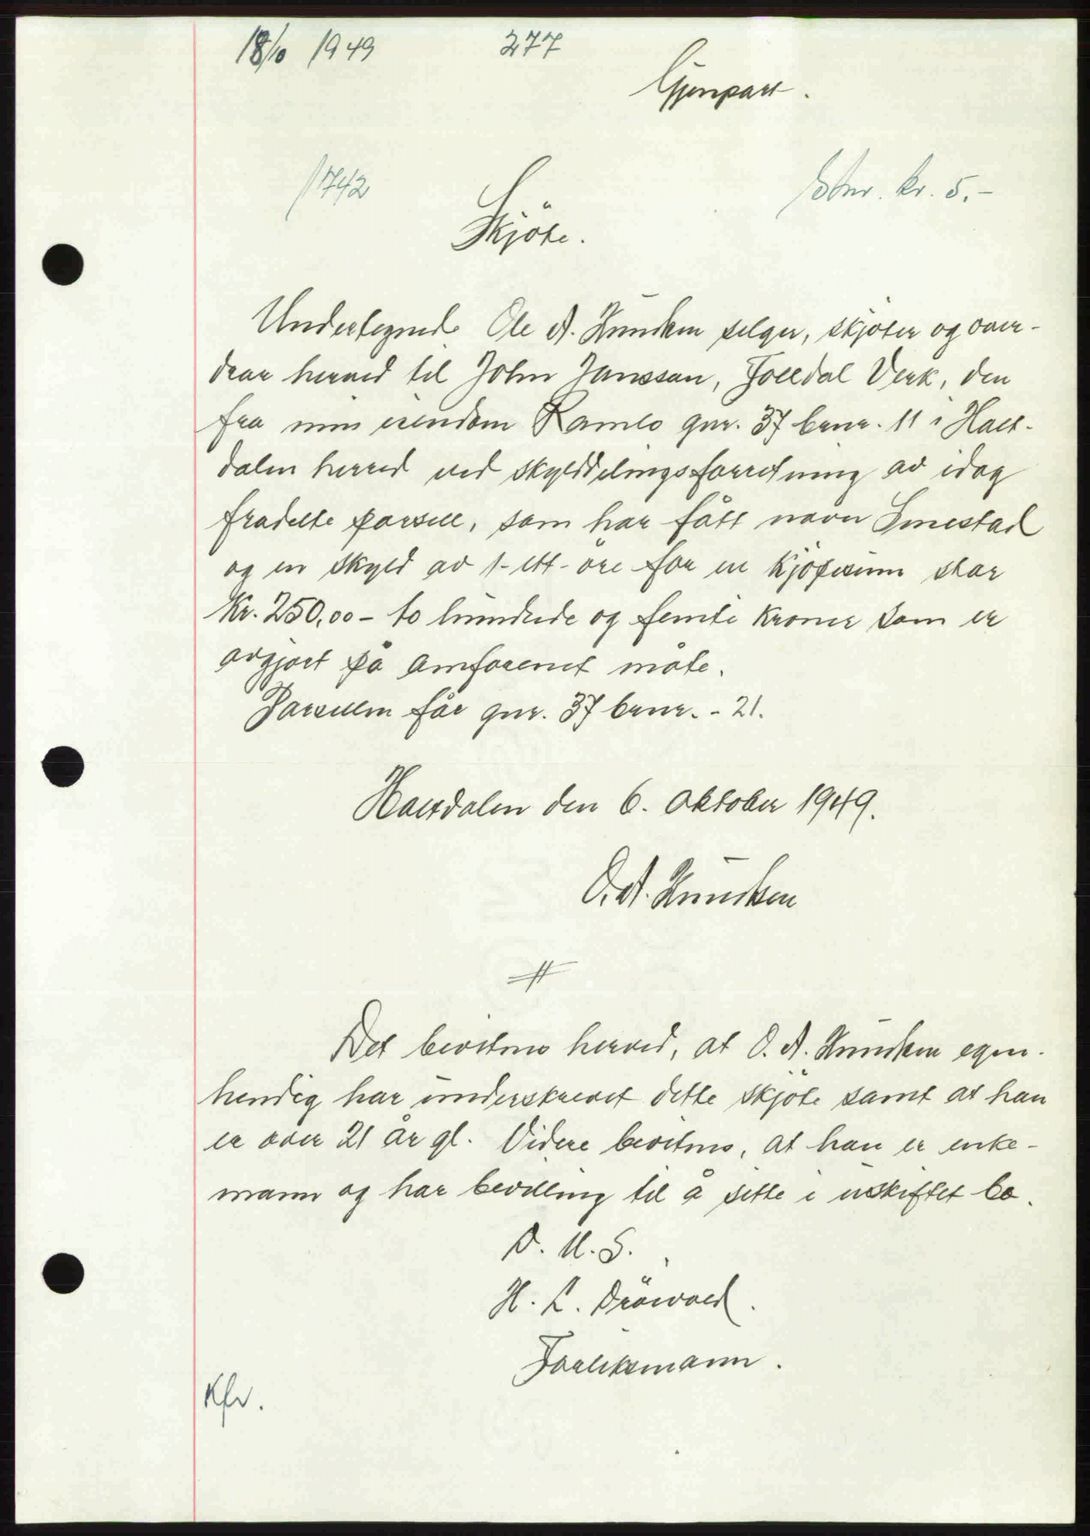 18/10 1949 277
Gjenpart.
1742
Stnr. kr. 5.-
Skjöte.
Undertegnede Ole A. Knudsen selger, skjöter og over-
drar herved til John Janssan, Folldal Verk, den
fra min eiendom Ramlo gnr. 37 brnr. 11 i Halt-
dalen herred ved skylddelingsforretning av idag
fradelte parsell, som har fått navn Smestad
og en skyld av 1-ett-öre for en kjöpesum stor
Kr. 250,00 - to hundrede og femti kroner som er
avgjort på omforenet måte.
Parsellen får gnr. 37 brnr. - 21.
Haltdalen den 6. oktober 1949.
O. A. Knudsen
#
Det bevitnes herved, at O. A. Knudsen egen-
hendig har underskrevet dette skjöte samt at han
er over 21 år gl. Videre bevitnes, at han er enke-
mann og har bevilling til å sitte i uskiftet bo.
D. U. S.
H. L. Dröivold.
Forliksmann.
Kfr.